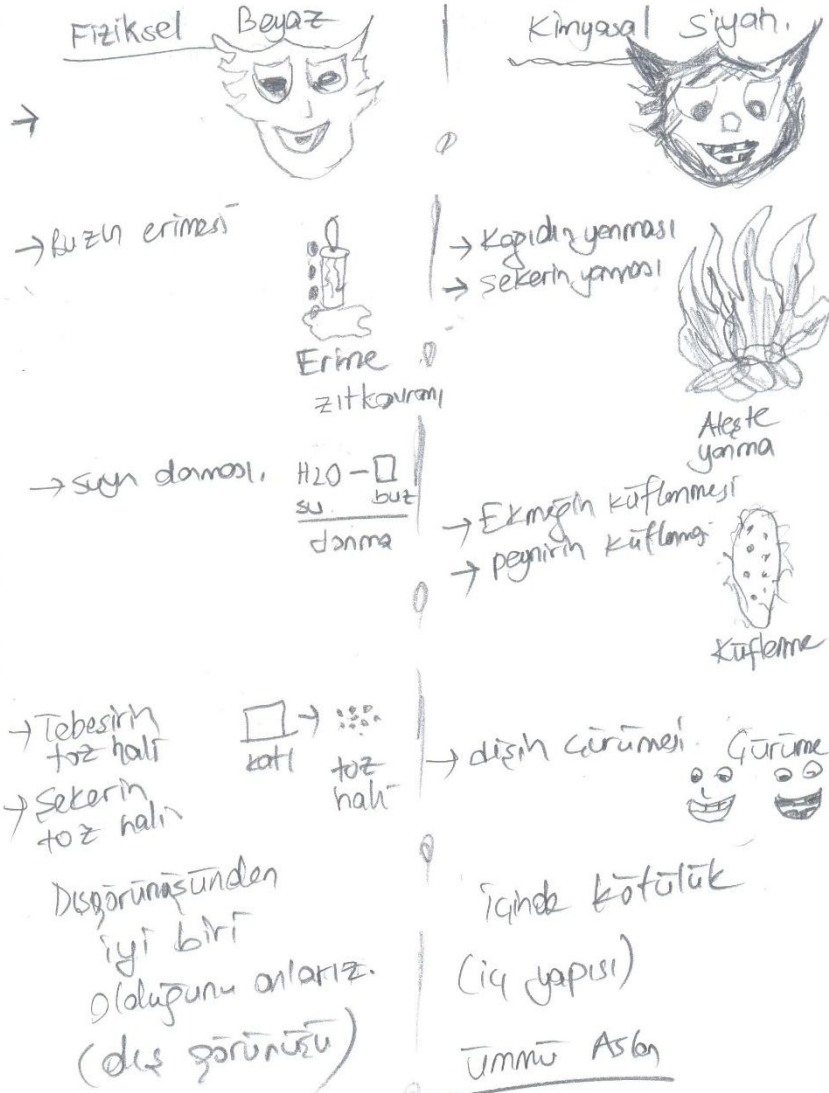 Fiziksel Beyaz
→
→ Buzun erimesi
Erime
zıt kavramı
→ suyn donması.
H2O - □
su buz
donma
→ Tebeşirin
toz hali
→ Şekerin
toz hali
katı
→
toz
hali
Dışgörünüşünden
iyi biri
olduğunu anlarız.
(dış görünüşü)
Kimyasal Siyah.
→ Kağıdın yanması
→ şekerin yanması
Ateşte
yanma
→ Ekmeğin küflenmesi
→ peynirin küflenmesi
Küflenme
→ dişin çürümesi
Çürüme
içinde kötülük
(iç yapısı)
Ümmü Aslan